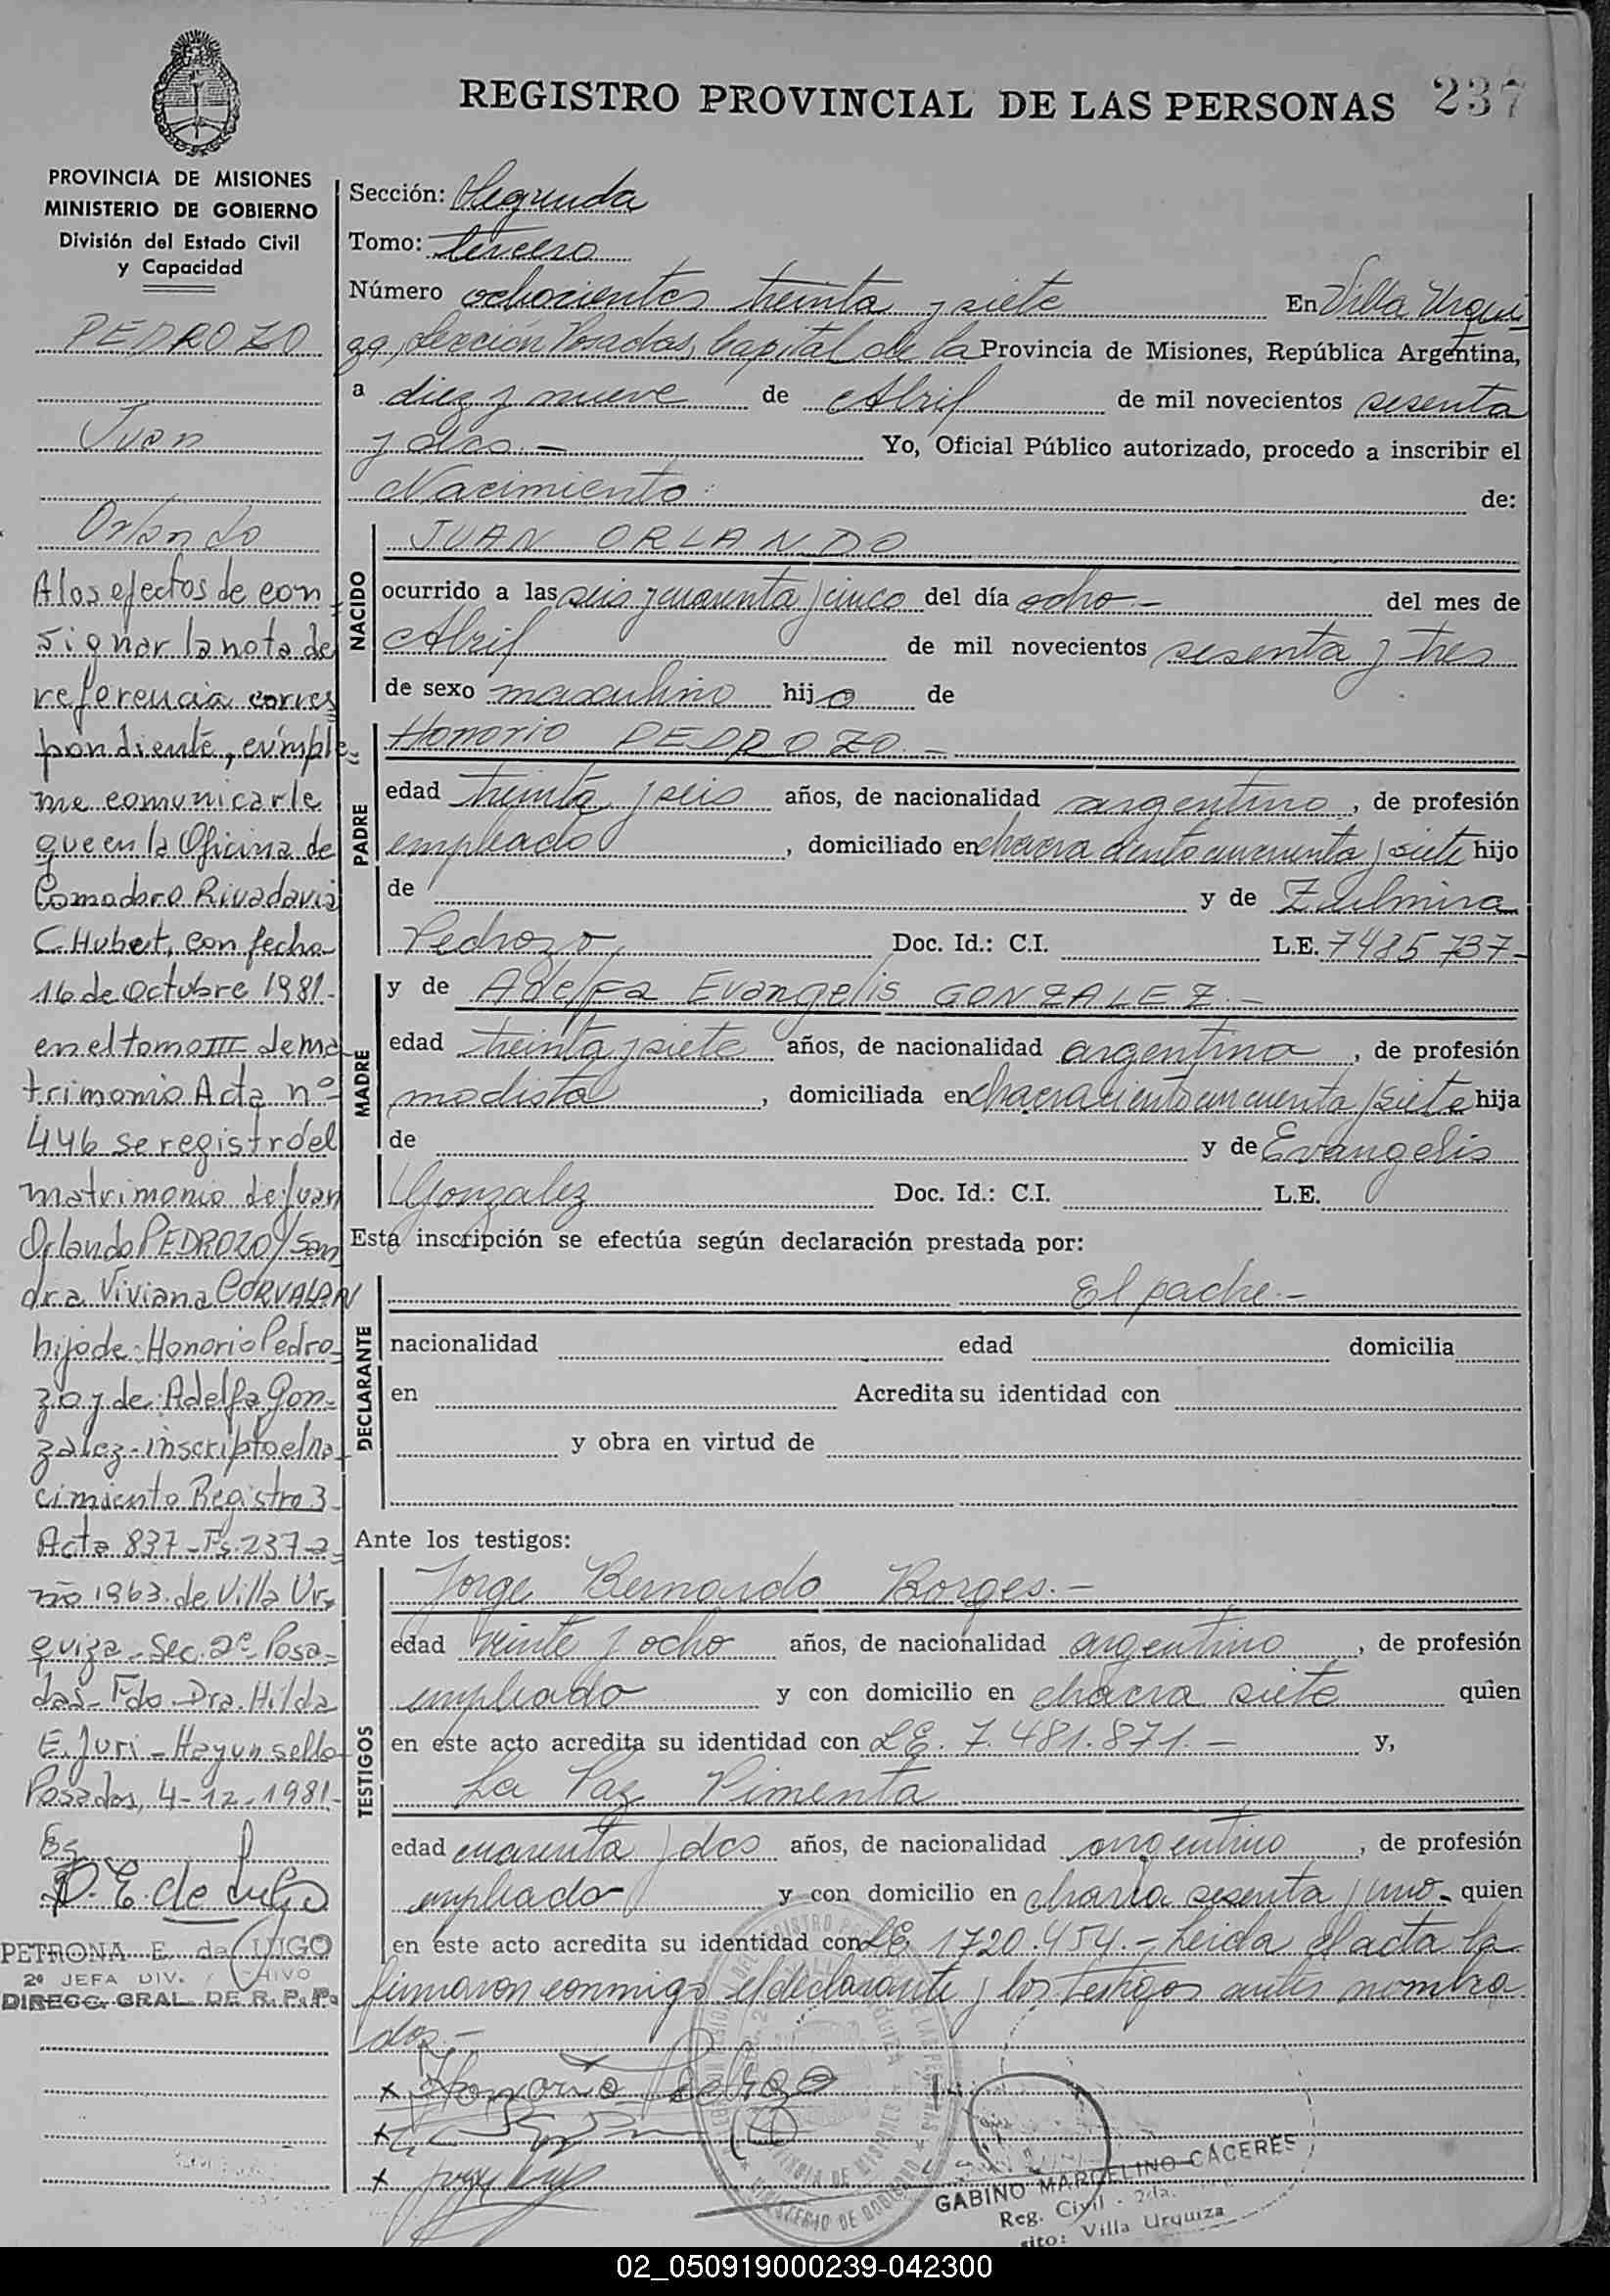 REGISTRO PROVINCIAL DE LAS PERSONAS 237
PROVINCIA DE MISIONES
MINISTERIO DE GOBIERNO
División del Estado Civil
y Capacidad
PEDROZO
Juan
Orlando
A los efectos de con
signar la nota de
referencia corres
pondiente, cúmple
me comunicarle
que en la Oficina de
Comodoro Rivadavia
CHubet, con fecha
16 de octubre 1981.-
en el tomo III de ma
trimonio Acta nº
446 se registró el
matrimonio de Juan
Orlando PEDROZO y San
dra Viviana CORVALAN
hijo de: Honorio Pedro
zo y de Adelfa Gon=
zalez - inscripto el na
cimiento Registro 3
Acta 837 - Fs. 237 - a
ño 1963 de Villa Ur
quiza - Sec. 2ª Posa=
das - Fdo. Dra. Hilda
E. Juri - Hay un sello
Posadas, 4-12-1981-
P. E. de Lugo
PETRONA E. de LUGO
2º JEFA DIV.
DIRECC. GRAL. DE R. P. P.
Sección: Segunda
Tomo: tercero
Número ochocientos treinta y siete En Villa Urqui
za, Sección Posadas, Capital de la Provincia de Misiones, República Argentina,
a diez y nueve de Abril de mil novecientos sesenta
y dos.- Yo, Oficial Público autorizado, procedo a inscribir el
Nacimiento: de:
NACIDO
JUAN ORLANDO
ocurrido a las seis y cuarenta y cinco del día ocho.- del mes de
Abril de mil novecientos sesenta y tres
de sexo masculino hijo de
PADRE
Honorio PEDROZO.-
edad treinta y seis años, de nacionalidad argentino, de profesión
empleado, domiciliado en chacra ciento cincuenta y siete hijo
de y de Zulmira
Pedrozo Doc. Id.: C.I. L.E. 7485737-
MADRE
y de Adelfa Evangelis GONZALEZ.-
edad treinta y siete años, de nacionalidad argentina, de profesión
modista, domiciliada en chacra ciento cincuenta y siete hija
de y de Evangelis
Gonzalez Doc. Id.: C.I. L.E.
Esta inscripción se efectúa según declaración prestada por:
DECLARANTE
El padre.-
nacionalidad edad domicilia
en Acredita su identidad con
y obra en virtud de
Ante los testigos:
TESTIGOS
Jorge Bernardo Borges.-
edad veinte y ocho años, de nacionalidad argentino, de profesión
empleado y con domicilio en chacra siete quien
en este acto acredita su identidad con L.E. 7.481.871.- y,
La Paz Pimenta
edad cuarenta y dos años, de nacionalidad argentino, de profesión
empleado y con domicilio en chacra sesenta y uno- quien
en este acto acredita su identidad con L.E. 1720.454.- Leida el acta la
firmaron conmigo el declarante y los testigos antes nombra
dos.-
x Honorio Pedrozo
x
x
GABINO MARCELINO CACERES
Reg. Civil - 2da.
Villa Urquiza
02_050919000239-042300